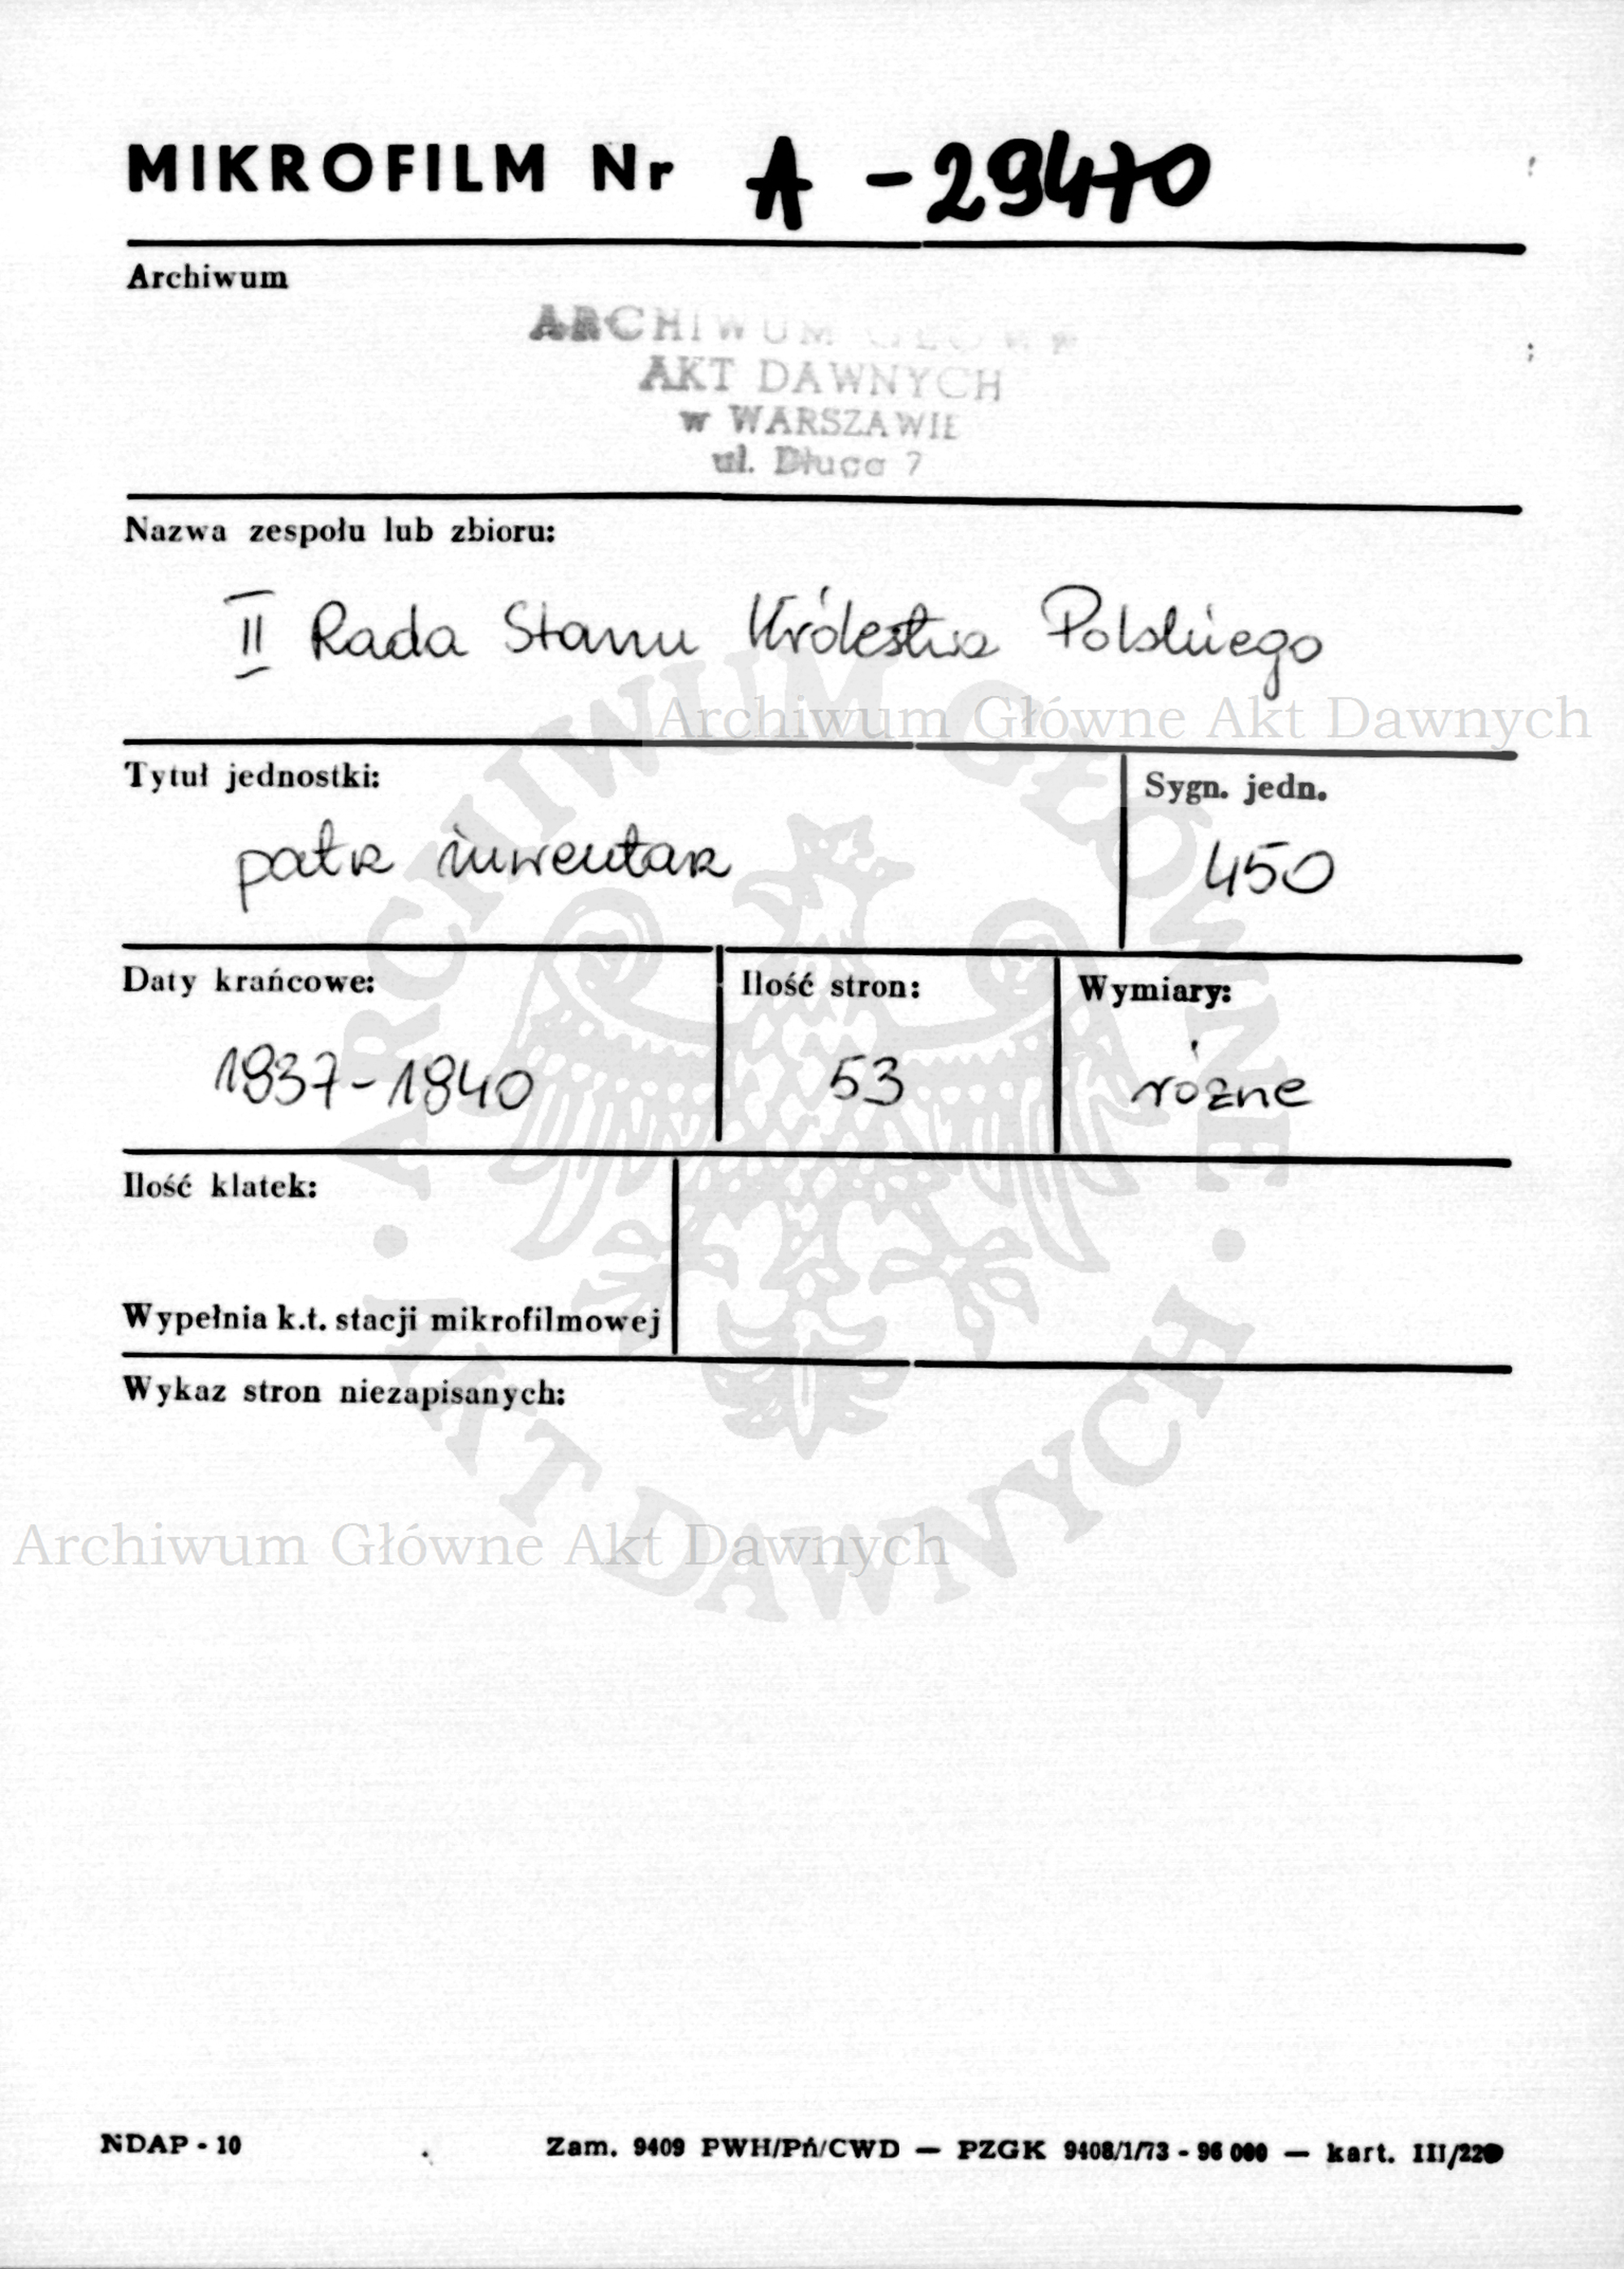 MIKROFILM Nr A - 29470
Archiwum
ARCHIWUM GŁÓWN
AKT DAWNYCH
w WARSZAWIE
ul. Długa 7
Nazwa zespołu lub zbioru:
II Rada Stanu Królestwa Polskiego
Archiwum Główne Akt Dawnych
Tytuł jednostki:
Sygn. jedn.
patrz inwentarz
450
Daty krańcowe:
Ilość stron:
Wymiary:
1837-1840
53
różne
Ilość klatek:
Wypełnia k.t. stacji mikrofilmowej
Wykaz stron niezapisanych:
ARCHIWUM GŁÓWNE
AKT DAWNYCH
Archiwum Główne Akt Dawnych
NDAP - 10
Zam. 9409 PWH/Pń/CWD — PZGK 9408/1/73 - 96 000 — kart. III/220